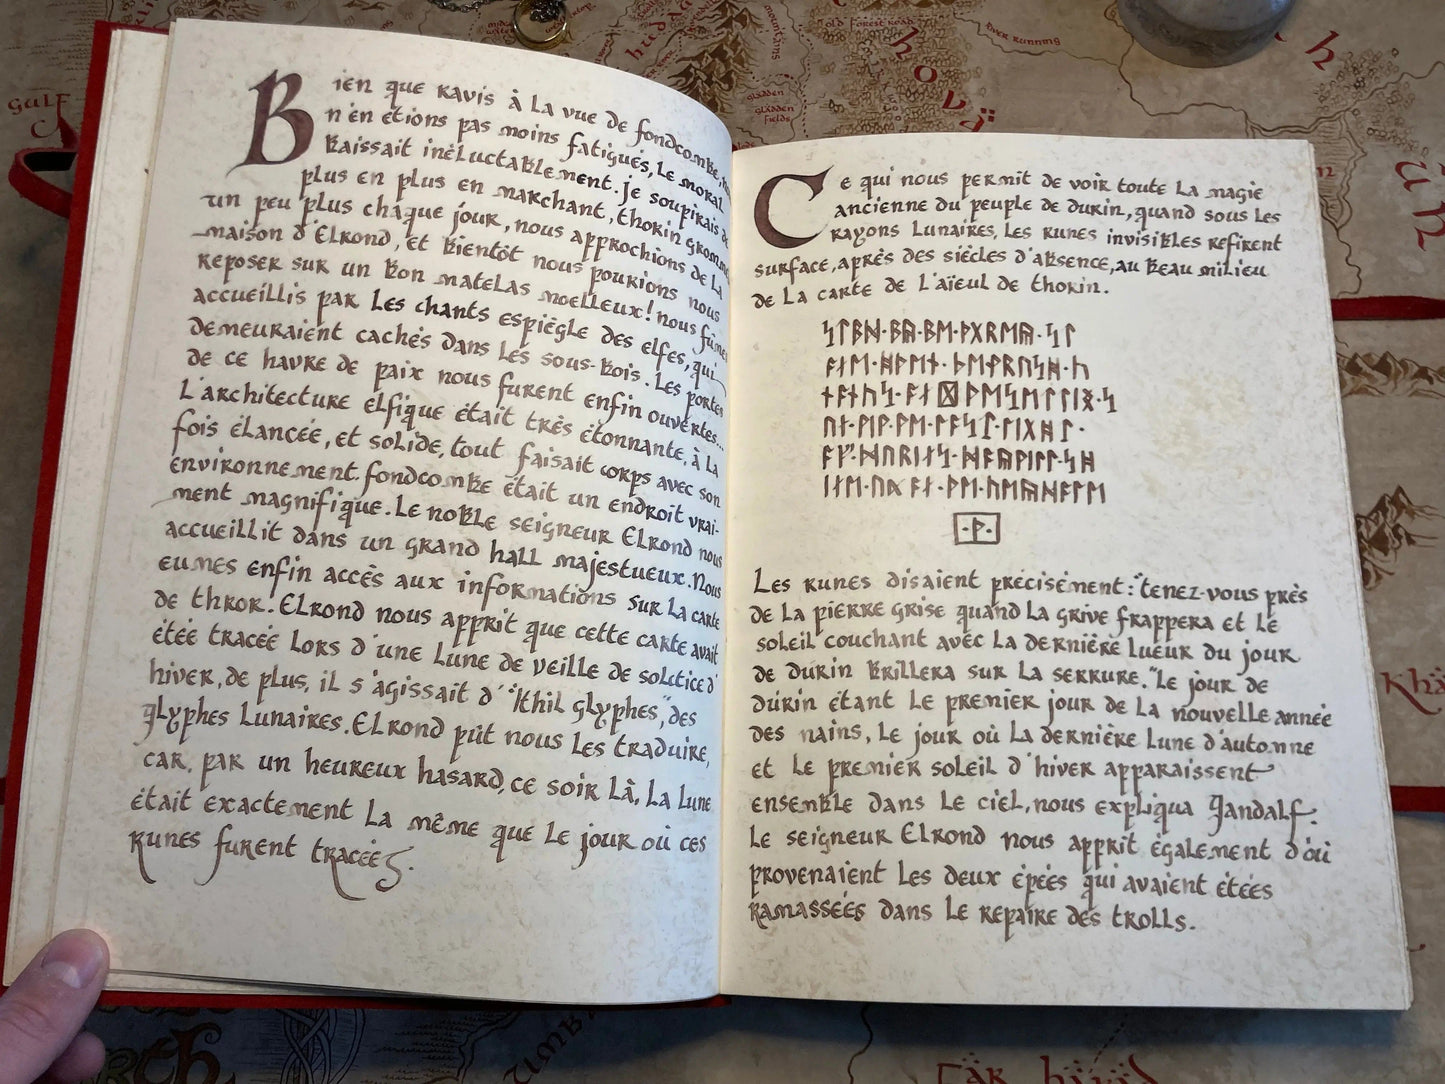 Bien que ravis à la vue de fondcombe,
n'en étions pas moins fatigués, le moral
baissait inéluctablement. je soupirais de
plus en plus en marchant, thorin
un peu plus chaque jour, nous approchions de la
maison d'Elrond, et bientôt nous pourions nous
reposer sur un bon matelas moelleux! nous fûmes
accueillis par les chants espiègle des elfes, qui
demeuraient cachés dans les sous-bois. Les portes
de ce havre de paix nous furent enfin ouvertes...
L'architecture elfique était très étonnante, à la
fois élancée, et solide, tout faisait corps avec son
environnement. fondcombe était un endroit vrai-
ment magnifique. Le noble seigneur Elrond nous
accueillit dans un grand hall majestueux. Nous
eumes enfin accès aux informations sur la carte
de thror. Elrond nous apprit que cette carte avait
étée tracée lors d'une lune de veille de solstice d'
hiver, de plus, il s'agissait d'"Ithil glyphes," des
glyphes lunaires. Elrond pût nous les traduire,
car, par un heureux hasard, ce soir là, la lune
était exactement la même que le jour où ces
runes furent tracées.
Ce qui nous permit de voir toute la magie
ancienne du peuple de durin, quand sous les
rayons lunaires, les runes invisibles refirent
surface, après des siècles d'absence, au beau milieu
de la carte de l'aïeul de thorin.
Les runes disaient précisément: "tenez-vous près
de la pierre grise quand la grive frappera et le
soleil couchant avec la dernière lueur du jour
de durin brillera sur la serrure." Le jour de
durin étant le premier jour de la nouvelle année
des nains, le jour où la dernière lune d'automne
et le premier soleil d'hiver apparaissent
ensemble dans le ciel, nous expliqua Gandalf.
Le seigneur Elrond nous apprit également d'où
provenaient les deux épées qui avaient étées
ramassées dans le repaire des trolls.
Old Forest Road
River Running
Gladden
Fields
Gulf